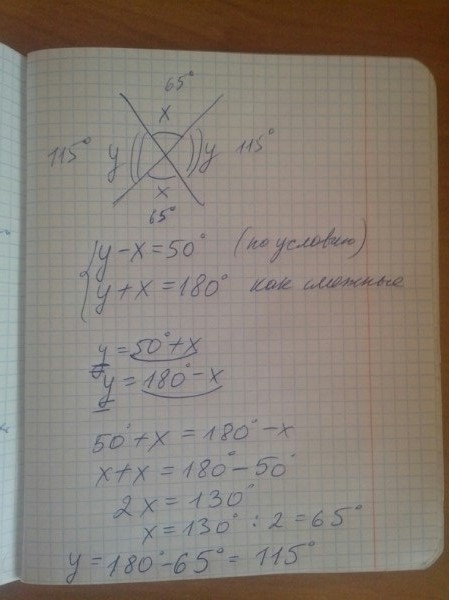 65°
x
115° y y 115°
x
65°
y - x = 50° (по условию)
y + x = 180° как смежные
y = 50° + x
y = 180° - x
50° + x = 180° - x
x + x = 180° - 50°
2x = 130°
x = 130° : 2 = 65°
y = 180° - 65° = 115°